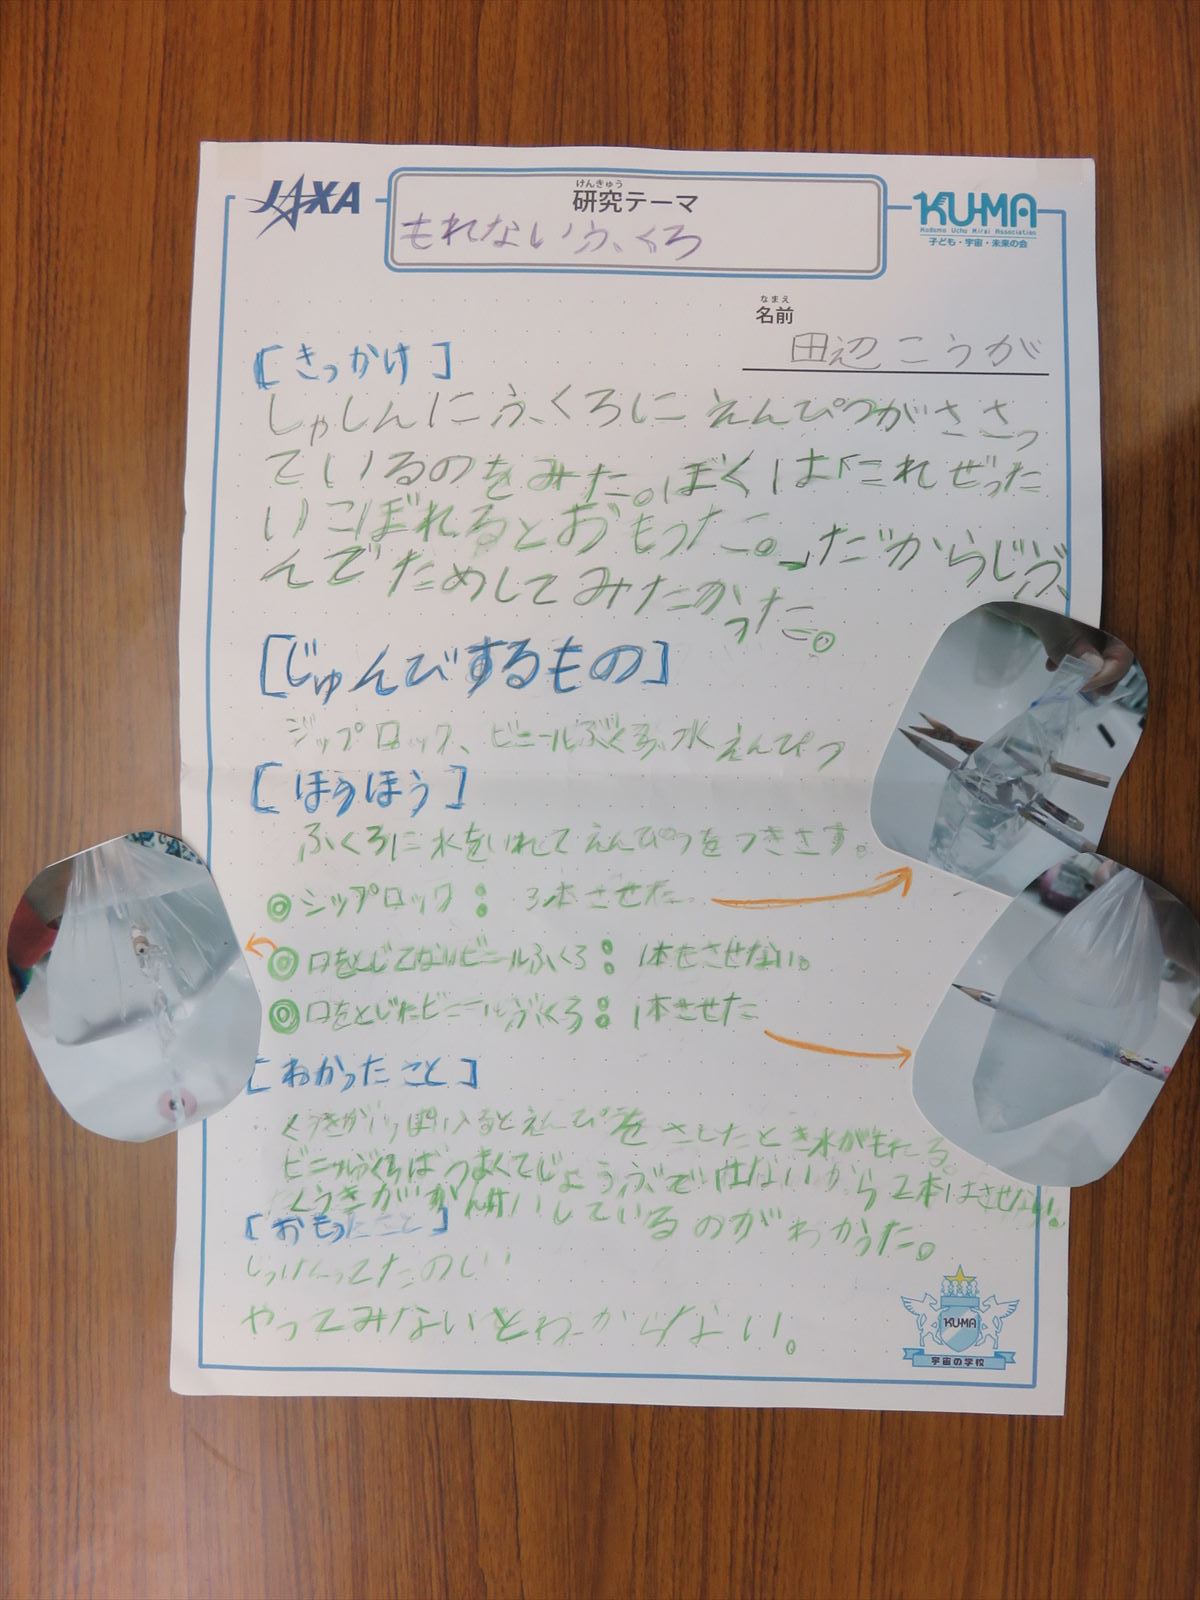 JAXA
けんきゅう
研究テーマ
もれないふくろ
KU-MA
Kodomo Uchu Mirai Association
子ども・宇宙・未来の会
なまえ
名前
田辺こうが
[きっかけ]
しゃしんにふくろにえんぴつがささっ
ているのをみた。ぼくは「これぜった
いこぼれるとおもった。」だからじぶ
んでためしてみたかった。
[じゅんびするもの]
ジップロック、ビニールぶくろ、水えんぴつ
[ほうほう]
ふくろに水をいれてえんぴつをつきさす。
◎ジップロック: 3本させた
◎口をとじてないビニールふくろ: 1本もさせない。
◎口をとじたビニールぶくろ: 1本させた
[わかったこと]
さしたとき水がもれる。
じょうぶではないから2本はさせない。
しているのがわかった。
[おもったこと]
じっけんってたのしい
やってみないとわからない。
KU-MA
宇宙の学校